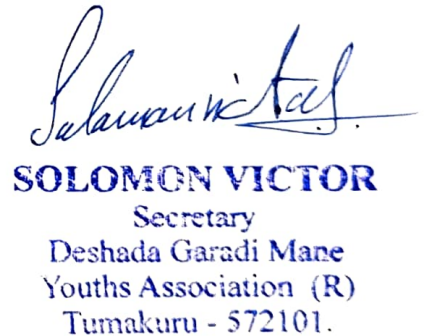 Solomon Victor
SOLOMON VICTOR
Secretary
Deshada Garadi Mane
Youths Association (R)
Tumakuru - 572101.